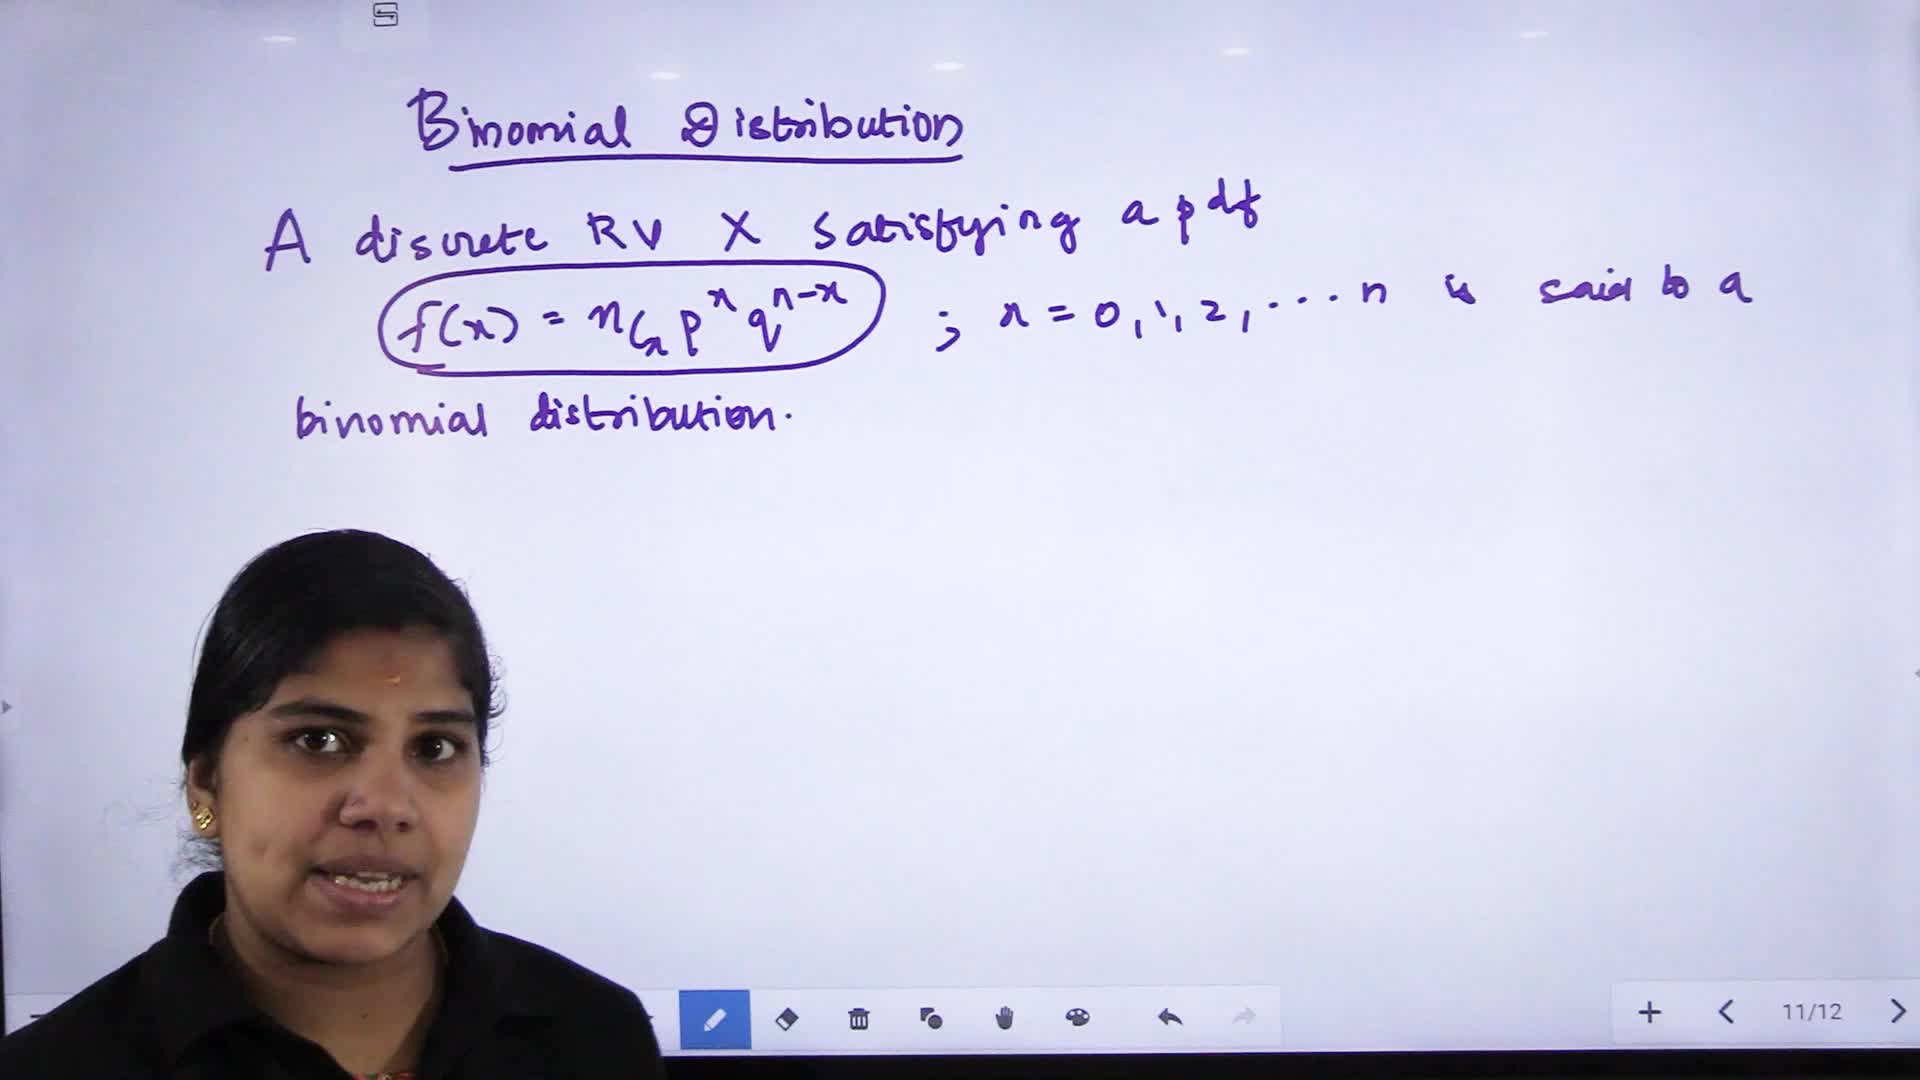 Binomial Distribution
A discrete RV X satisfying a pdf
f(x) = nCx p^x q^n-x ; x = 0, 1, 2, ... n is said to a
binomial distribution.
11/12